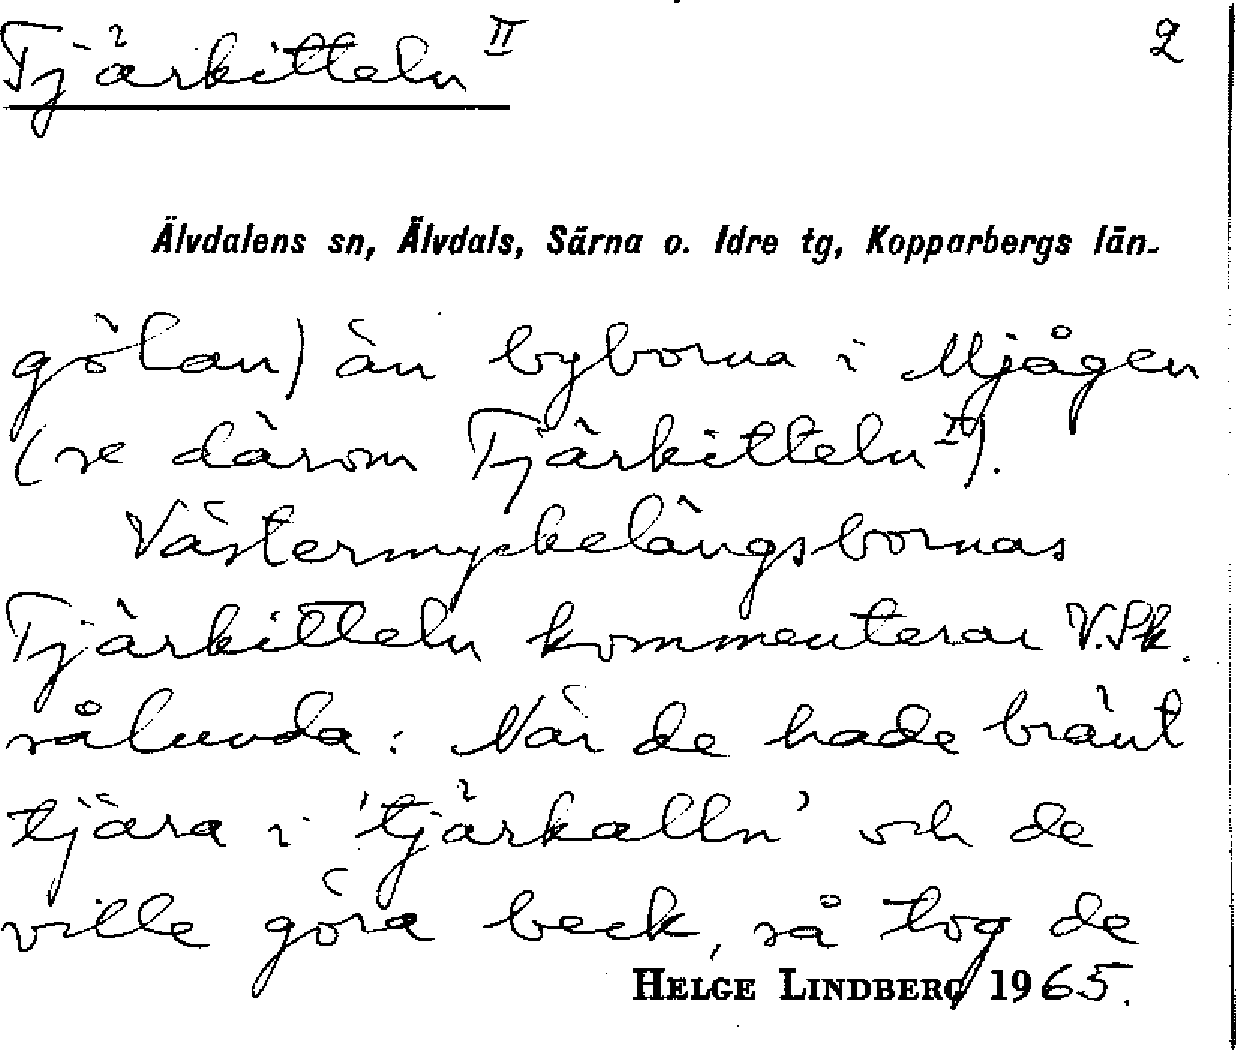 Tjärkitteln II 2
Älvdalens sn, Älvdals, Särna o. Idre tg, Kopparbergs län.
gölan) än byborna i Mjågen
(se därom Tjärkitteln II).
Västermyckelängsbornas
Tjärkitteln kommenterar V.Sk.
sålunda: När de hade bränt
tjära i 'tjärkalln' och de
ville göra beck, så tog de
HELGE LINDBERG 1965.